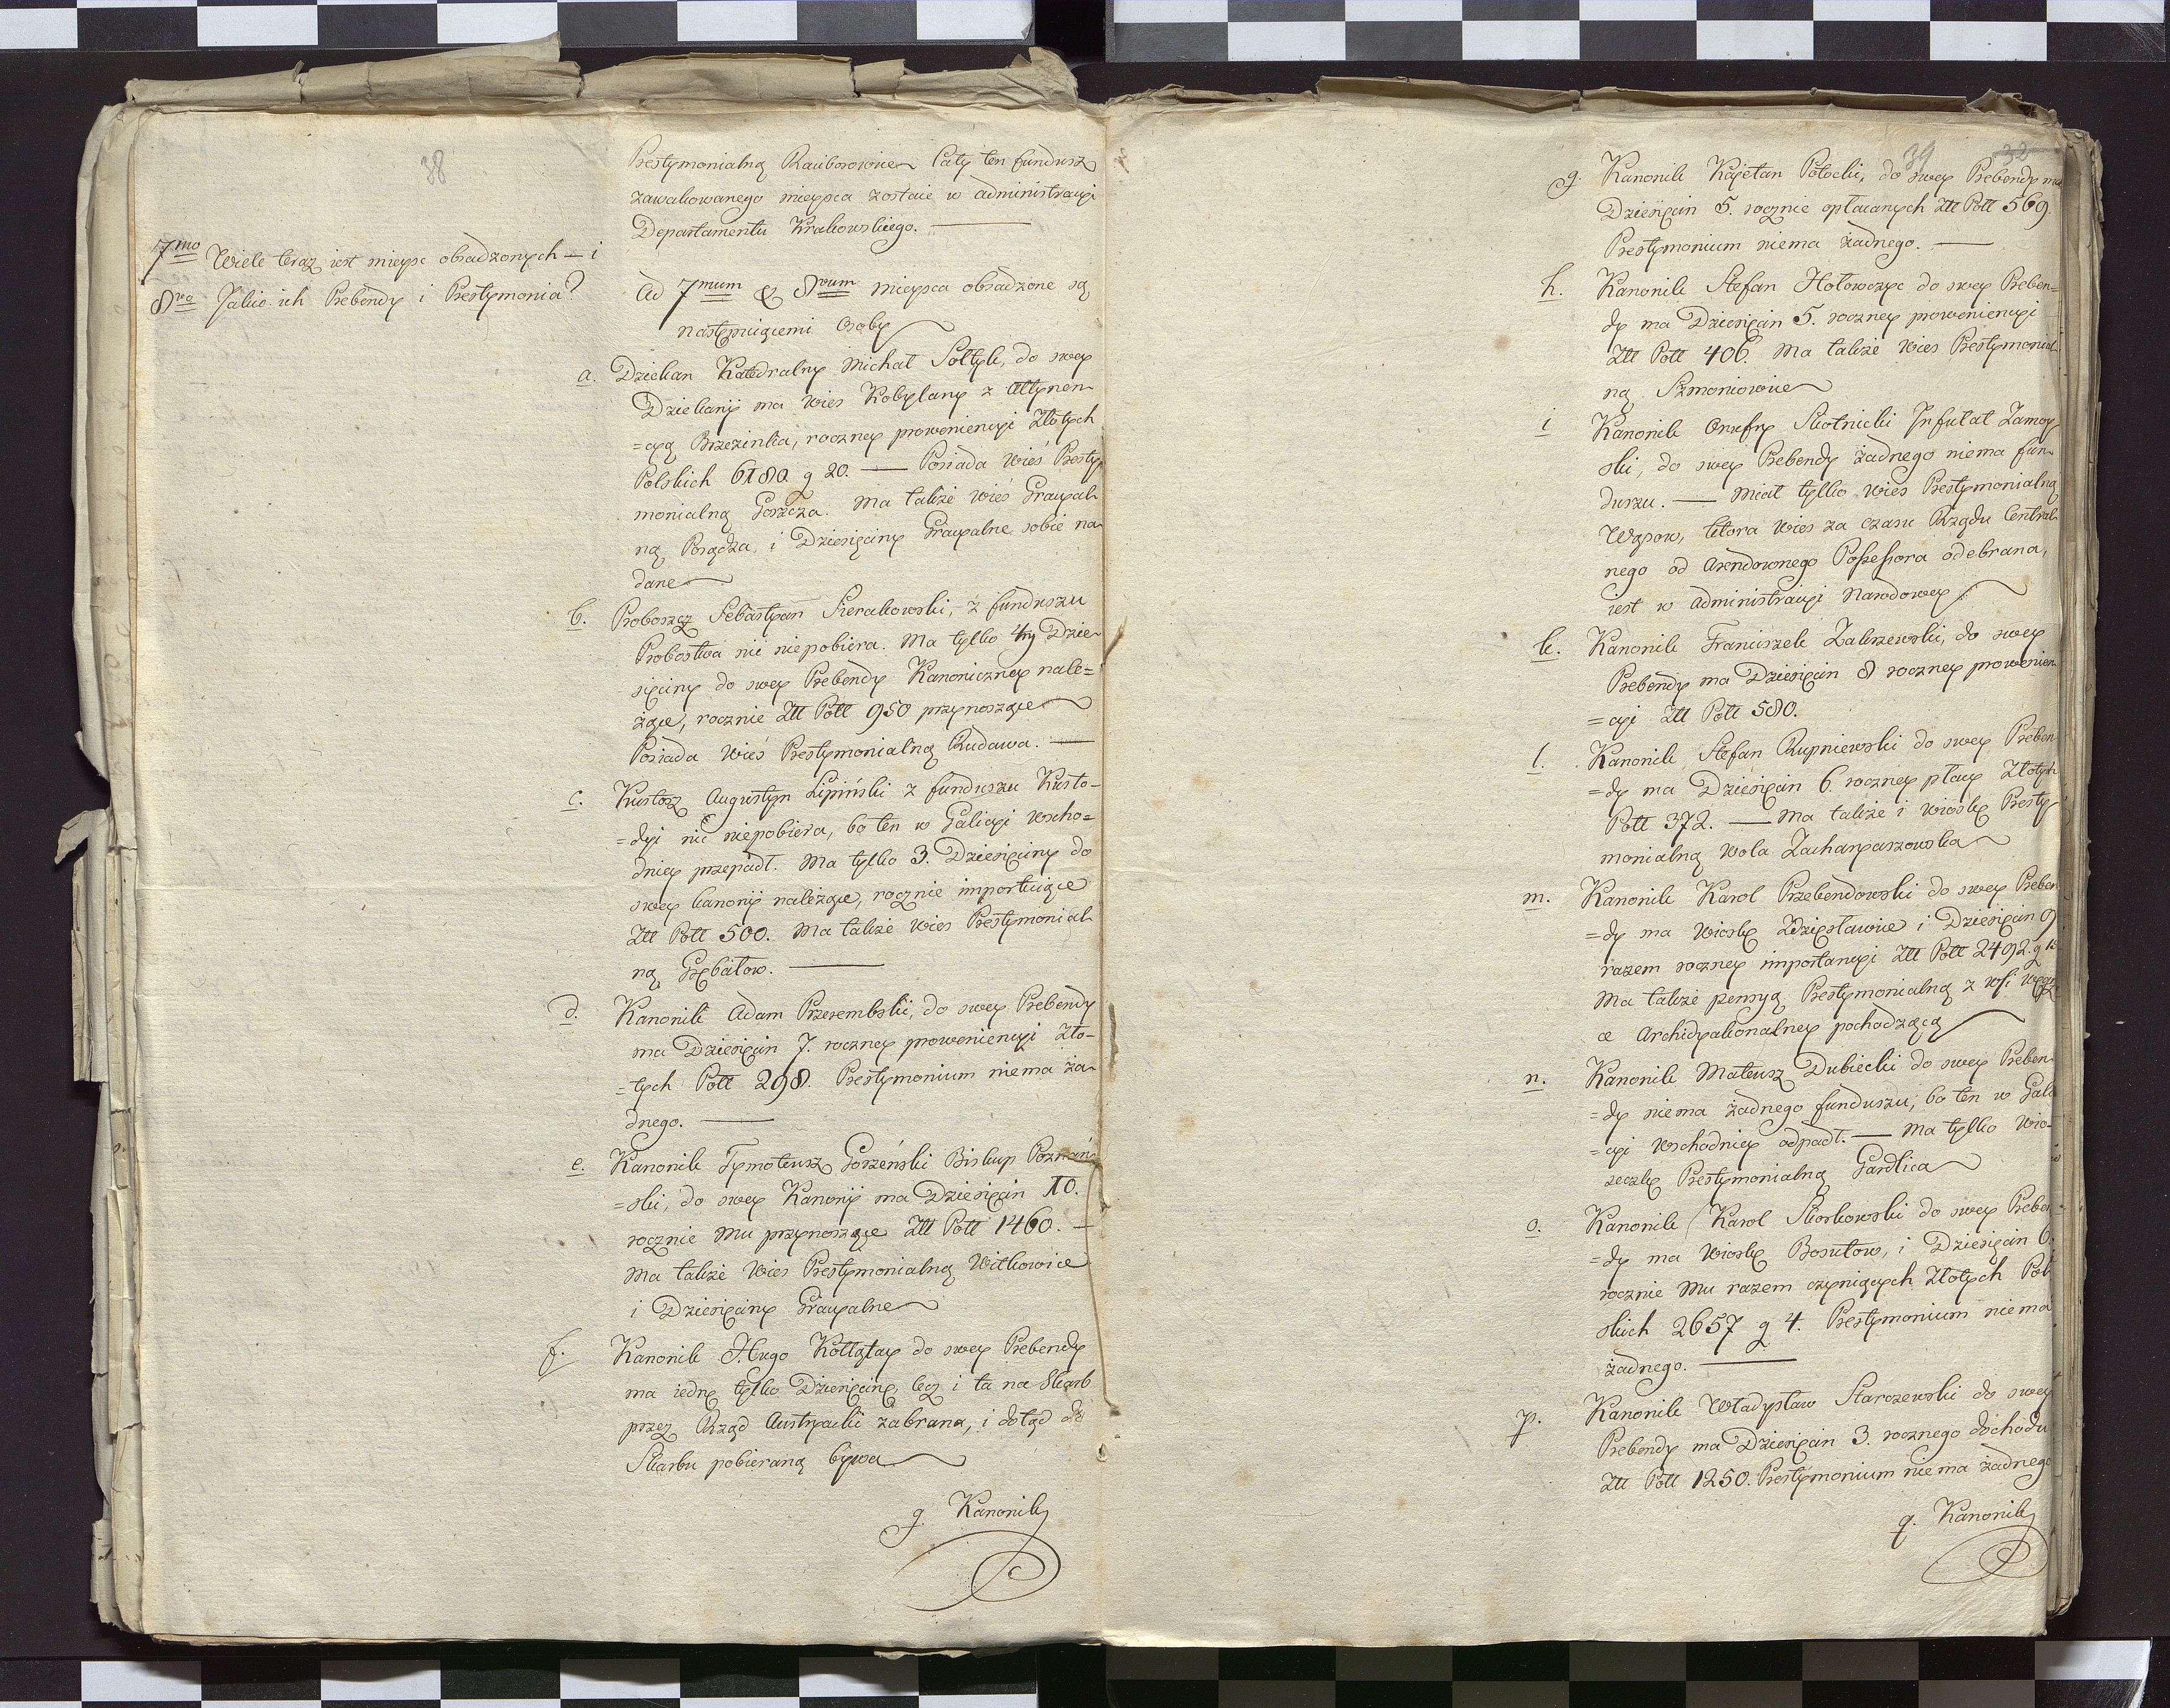 38
Prestymonialną Raciborowice Cały ten fundusz
zawakowanego mieysca zostaie w administracyi
Departamentu Krakowskiego. —
7mo Wiele teraz iest mieysc obsadzonych — i
8vo Jakie ich Prebendy i Prestymonia?
Ad 7mum & 8vum mieysca obsadzone są
następuiącemi Osoby
a. Dziekan Katedralny Michał Sołtyk, do swey
Dziekanij ma wies Kobylany z Attynen-
=cyą Brzezinka, roczney prowenięcyi Złotych
Polskich 6180 g 20. — Posiada Wieś Presty-
monialną Goszcza. Ma także wieś Gracyal-
ną Posądza, i Dziesięciny Gracyalne sobie na-
dane
b. Proboszcz Sebastyan Sierakowski, z funduszu
Probostwa nic niepobiera. Ma tylko 4ry Dzie-
sięciny do swey Prebendy Kanoniczney nale=
żące, rocznie Złł Poll 950 przynoszące
Posiada Wieś Prestymonialną Rudawa. —
c. Kustosz Augustyn Lipiński z funduszu Kusto-
=dyi nic niepobiera, bo ten w Galicyi wscho=
dniey przepadł. Ma tylko 3. Dziesięciny do
swey kanonij należące, rocznie importuiące
Złł Poll 500. Ma także Wies Prestymonial-
ną Gębałow. —
d. Kanonik Adam Przerembski, do swey Prebendy
ma Dziesięcin 7. roczney prowenięcyi Zło-
=tych Poll 298. Prestymonium niema ża-
dnego. —
e. Kanonik Tymoteusz Gorzeński Biskup Poznań-
=ski, do swey Kanonij ma Dziesięcin 10.
rocznie mu przynoszące Złł Poll 1460. —
Ma także Wies Prestymonialną Witkowice
i Dziesięciny Gracyalne
f. Kanonik Hugo Kołłątay do swey Prebendy
ma iednę tylko Dziesięcinę, lecz i ta na Skarb
przez Rząd Austryacki zabrana, i dotąd do
Skarbu pobieraną bywa
g Kanonik
39 32
g. Kanonik Kajetan Potocki, do swey Prebendy ma
Dziesięcin 5. rocznie opłacanych Złł Poll 569.
Prestymonium niema żadnego. —
h. Kanonik Stefan Hołowczyc do swey Preben=
dy ma Dziesięcin 5. roczney prowenięcyi
Złł Poll 406. Ma także Wies Prestymonial-
ną Szmoniowice
i Kanonik Onufry Skotnicki Infułat Zamoy-
ski, do swey Prebendy żadnego niema fun-
duszu. — Miał tylko Wies Prestymonialną
Wąsow, ktora Wies za czasu Rządu Central-
nego od Arendownego Possessora odebrana,
iest w Administracyi Narodowey
k. Kanonik Franciszek Zakrzewski, do swey
Prebendy ma Dziesięcin 8 roczney prowenien-
=cyi Złł Poll 580.
l. Kanonik Stefan Rupniewski do swey Preben-
=dy ma Dziesięcin 6. roczney płacy Złotych
Poll 372. — Ma także i wioskę Presty-
monialną Wola Zacharyaszowska
m. Kanonik Karol Przebendowski do swey Preben-
=dy ma Wioskę Zdzięsławice i Dziesięcin 9
razem roczney importancyi Złł Poll 2492 g 15
Ma także pensyą Prestymonialną z wsi
Archidyakonalney pochodzącą
n. Kanonik Mateusz Dubiecki do swey Preben-
=dy niema żadnego funduszu, bo ten w Gali-
=cyi Wschodniey odpadł. — Ma tylko wio-
seczkę Prestymonialną Gardlica
o. Kanonik Karol Skorkowski do swey Preben-
=dy ma Wioskę Bosutow, i Dziesięcin 6.
rocznie mu razem czyniących Złotych Pol-
skich 2657 g 4. Prestymonium niema
żadnego. —
p. Kanonik Władysław Starczewski do swey
Prebendy ma Dziesięcin 3. rocznego dochodu
Złł Poll 1250. Prestymonium niema żadnego
q. Kanonik